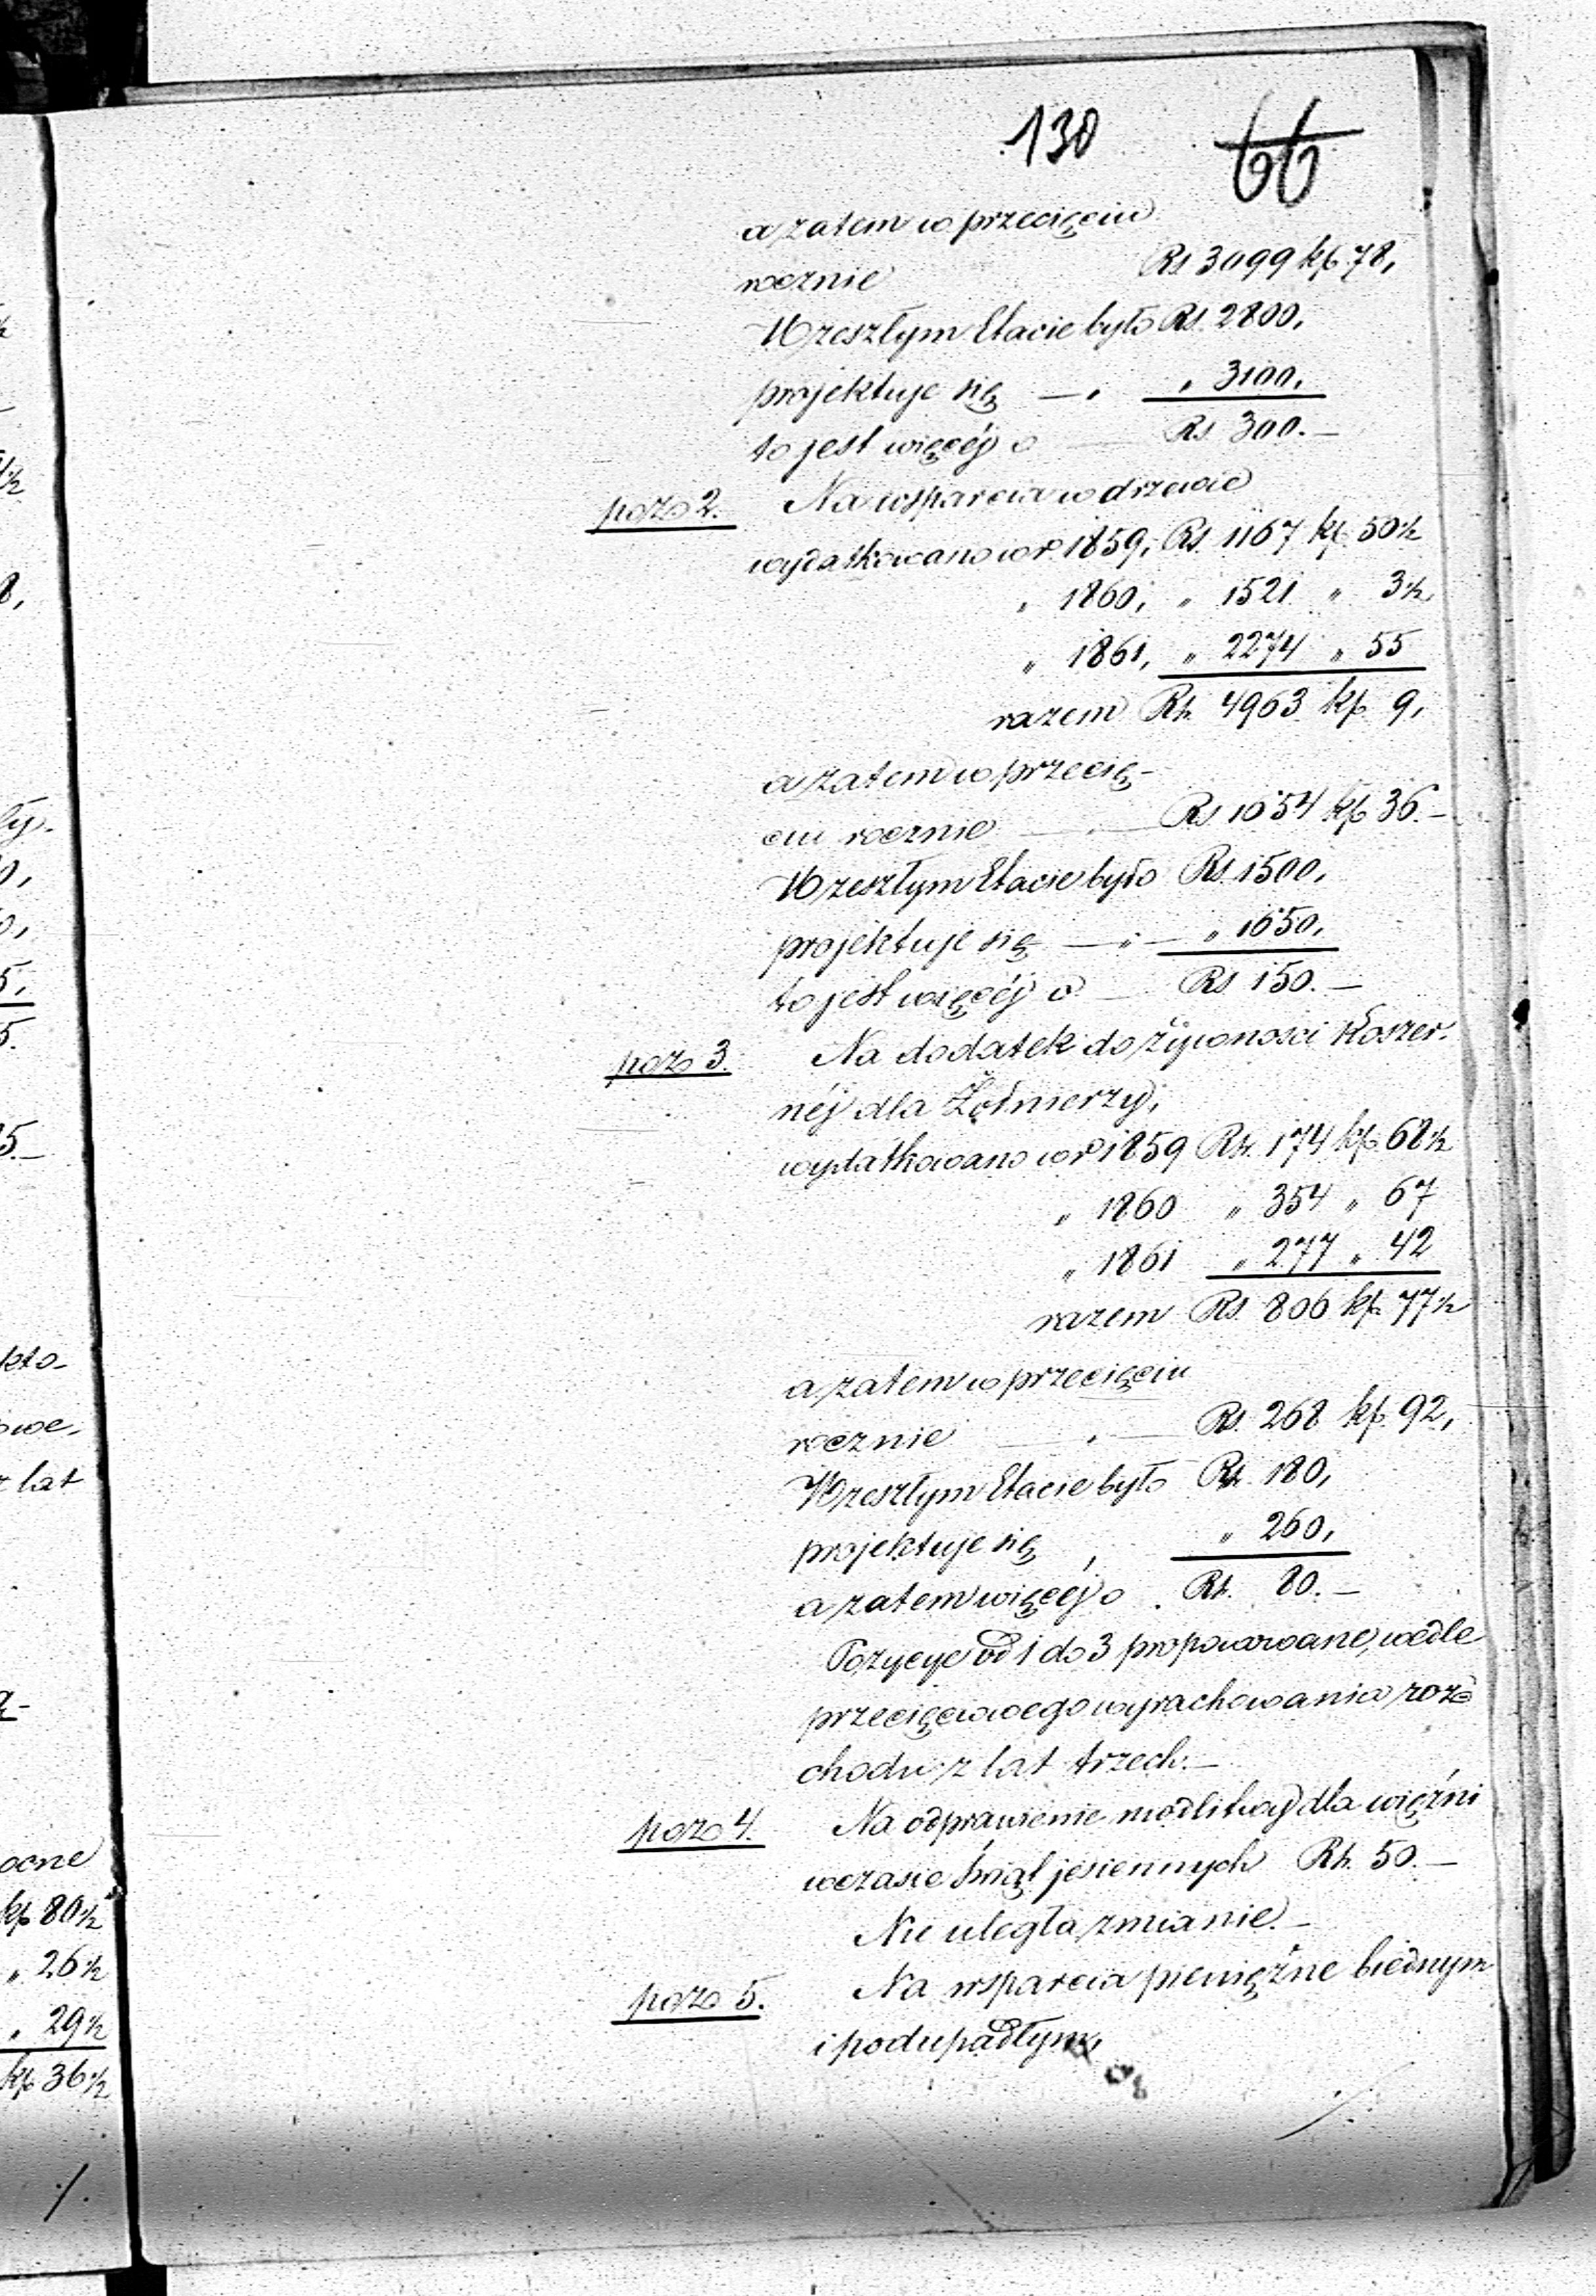 130 66
a zatem w przecięciu
rocznie Rs 3099 kp. 78,
W zeszłym Etacie było Rs. 2800,
projektuje się — „ 3100,
to jest więcéj o Rs 300. —
pozo 2. Na wsparcia w drzewie
wydatkowano w r. 1859, Rs. 1167 kp. 50½
„ 1860, „ 1521 „ 3½
„ 1861, „ 2274 „ 55
razem Rs. 4963 kp 9,
a zatem w przecię-
ciu rocznie — Rs 1654 kp 36. —
W zeszłym Etacie było Rs. 1500,
projektuje się — „ — „ 1650,
to jest więcéj o Rs 150. —
pozo 3. Na dodatek do żywności koszer-
néj dla Żołnierzy,
wydatkowano w r. 1859 Rs. 174 kp. 68½
„ 1860 „ 354 „ 67
„ 1861 „ 277 „ 42
razem Rs. 806 kp. 77½
a zatem w przecięciu
rocznie — Rs. 268 kp. 92,
W zeszłym Etacie było Rs. 180,
projektuje się „ 260,
a zatem więcéj o Rs. 80. —
Pozycye od 1 do 3 proponowane, wedle
przecięciowego wyrachowania roz-
chodu z lat trzech. —
pozo 4. Na odprawienie modlitwy dla więźni
w czasie Świąt jesiennych Rs. 50. —
Nie uległa zmianie. —
pozo 5. Na wsparcia pieniężne biednym
i podupadłym,